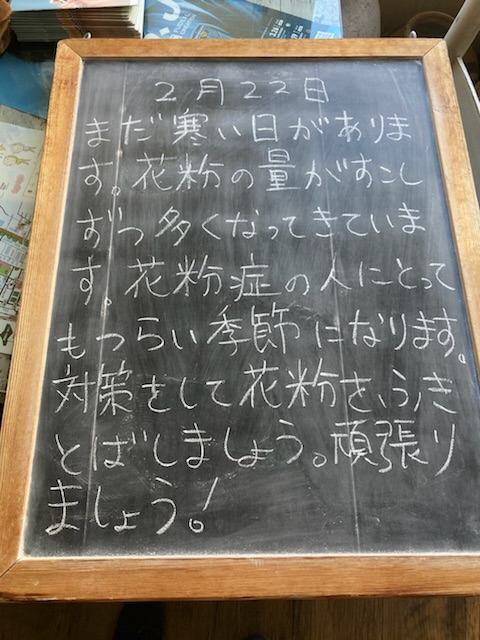 2月22日
まだ寒い日がありま
す。花粉の量がすこし
ずつ多くなってきていま
す。花粉症の人にとって
もつらい季節になります。
対策をして花粉を、うき
とばしましょう。頑張り
ましょう!